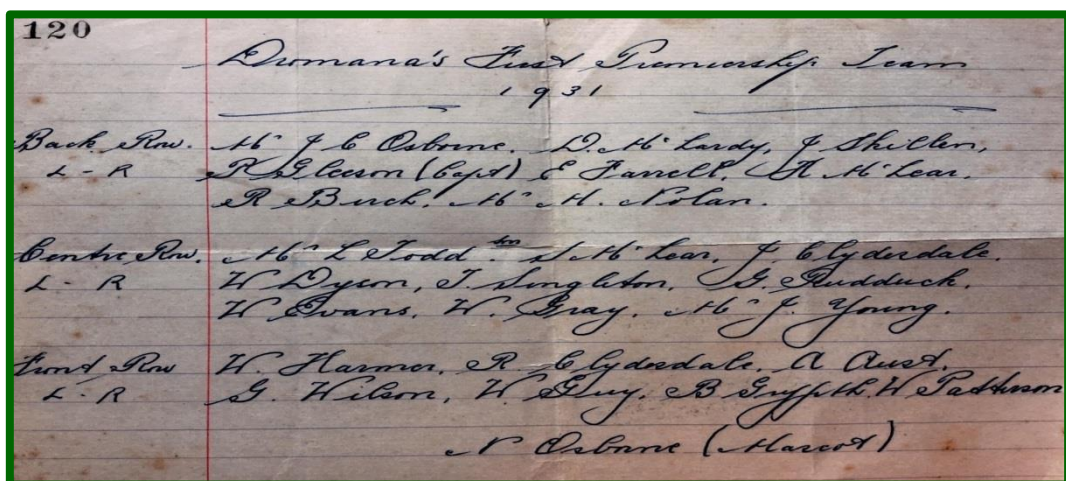 120
Dromana's First Premiership Team
1931
Back Row. Mr J C Osborne. D. McLardy, J Shillen,
L - R R Gleeson (Capt) E Farrell, A McLear.
R Burch. Mr M. Nolan.
Centre Row. Mr L Todd sen S McLear, J. Clydesdale.
L - R W Dyson, J. Singleton, G. Rudduck.
W Evans, W. Gray, Mr J. Young.
Front Row W. Harmer, R Clydesdale, A Aust,
L - R G. Wilson, W Guy, B Gryffth, W Patterson
N Osborne (Mascot)